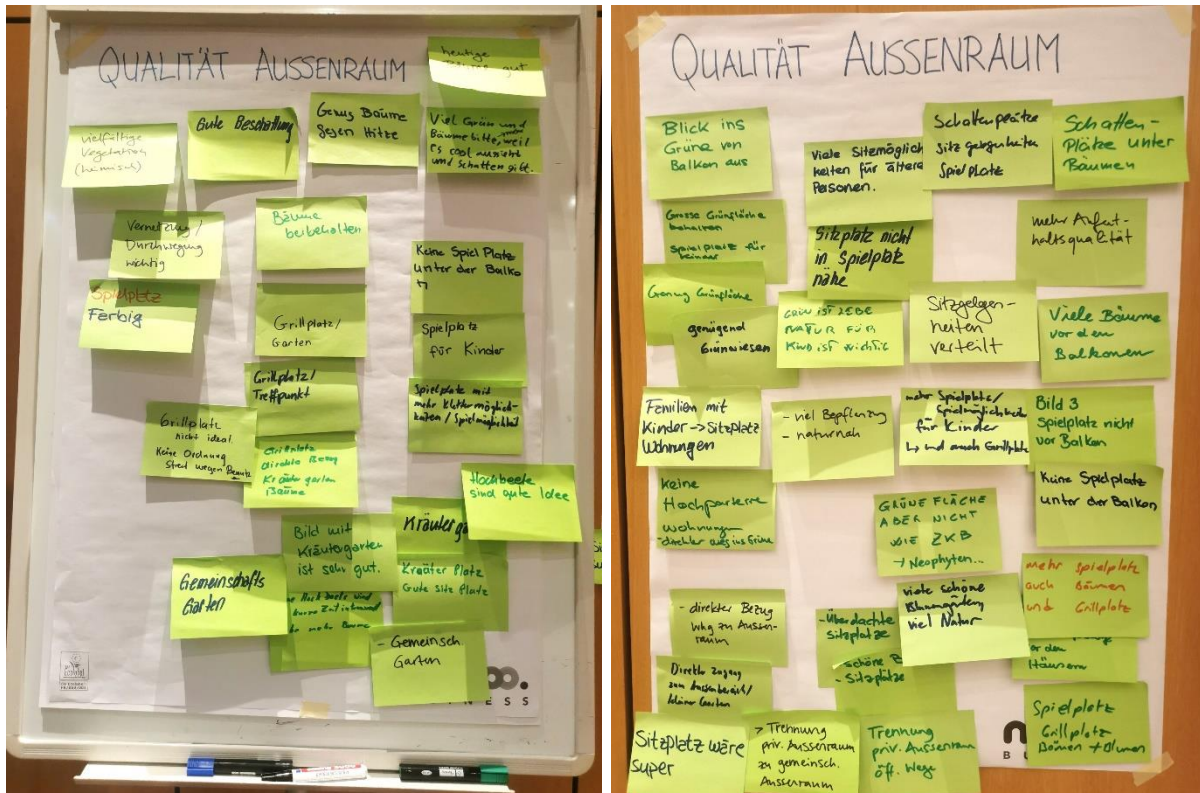 QUALITÄT AUSSENRAUM
heutige
gut
vielfältige
Vegetation
(heimisch)
Gute Beschattung
Genug Bäume
gegen Hitze
Viel Grün und
Bäume bitte, weil
es cool aussieht
und Schatten gibt.
Vernetzung/
Durchwegung
wichtig
Bäume
beibehalten
Keine Spiel Platz
unter der Balko
n
Spielplatz
Farbig
Grillplatz/
Garten
Spielplatz
für Kinder
Grillplatz/
Treffpunkt
Spielplatz mit
mehr Klettermöglich-
keiten/Spielmöglichkeit
Grillplatz
nicht ideal
Keine Ordnung
Streit wegen
Grillplatz
direkte Bezug
Kräutergarten
Bäume
Hochbeete
sind gute Idee
Bild mit
Kräutergarten
ist sehr gut.
Kräuterga
Kräuter Platz
Gute Sitz Platz
Gemeinschafts
Garten
Hochbeete sind
mehr Bäume
- Gemeinsch.
Garten
NESS
QUALITÄT AUSSENRAUM
Blick ins
Grüne von
Balkon aus
Viele Sitzmöglich
keiten für ältere
Personen.
Schattenplätze
Sitzgelegenheiten
Spielplatz
Schatten-
Plätze unter
Bäumen
Grosse Grünfläche
behalten
Spielplatz für
Kinder
Sitzplatz nicht
in Spielplatz
nähe
mehr Aufent-
haltsqualität
Genung Grünfläche
genügend
Grünwiesen
GRÜN IST
NATUR FÜR
KIND IST WICHTIG
Sitzgelegen-
heiten
verteilt
Viele Bäume
vor den
Balkonen
Familien mit
Kinder → Sitzplatz
Wohnungen
- viel Bepflanzung
- naturnah
mehr Spielplatz/
Spielmöglichkeit
für Kinder
↳ und auch Grillplatz
Bild 3
Spielplatz nicht
vor Balkon
keine
Hochparterre
wohnung
direkter ins Grüne
GRÜNE FLÄCHE
ABER NICHT
WIE ZKB
→ Neophyten...
Keine Spielplatz
unter der Balkon
mehr spielplatz
auch Bäumen
und Grillplatz
- direkter Bezug
Whg zu Aussen-
raum
- Überdachte
Sitzplätze
- schöne
- Sitzplätze
viele schöne
Blumengärten,
viel Natur
vor den
Häusern
Direkte Zugang
zum Aussenbereich/
kleiner Garten
Sitzplatz wäre
super
> Trennung
priv. Aussenraum
zu gemeinsch.
Aussenraum
Trennung
priv. Aussenraum
öff. Wege
Spielplatz
Grillplatz
Bömen + Blumen